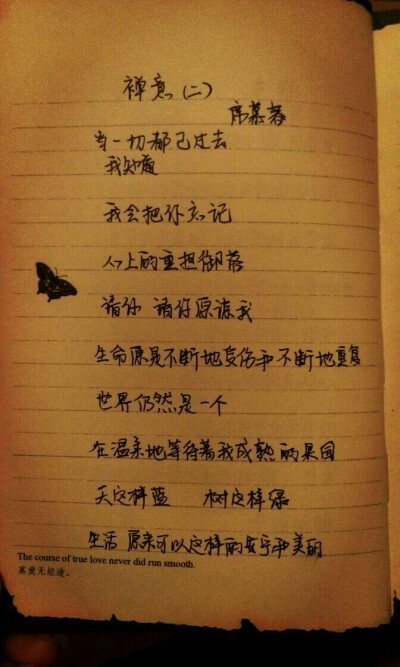 禅意(二)
席慕蓉
当一切都已过去
我知道
我会把你忘记
心上的重担御落
请你 请你原谅我
生命原是不断地受伤和 不断地重复
世界仍然是一个
在温柔地等待着我成熟的果园
天这样蓝 树这样绿
生活 原来可以这样的安宁和美丽
The course of true love never did run smooth.
真爱无坦途。